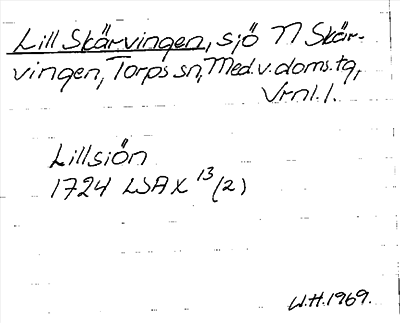 Lill Skärvingen, sjö N Skär-
vingen, Torps sn, Med.v.doms.tg,
Vrnl.l.
Lillsiön
1724 LSA X 13 (2)
W.H. 1969.